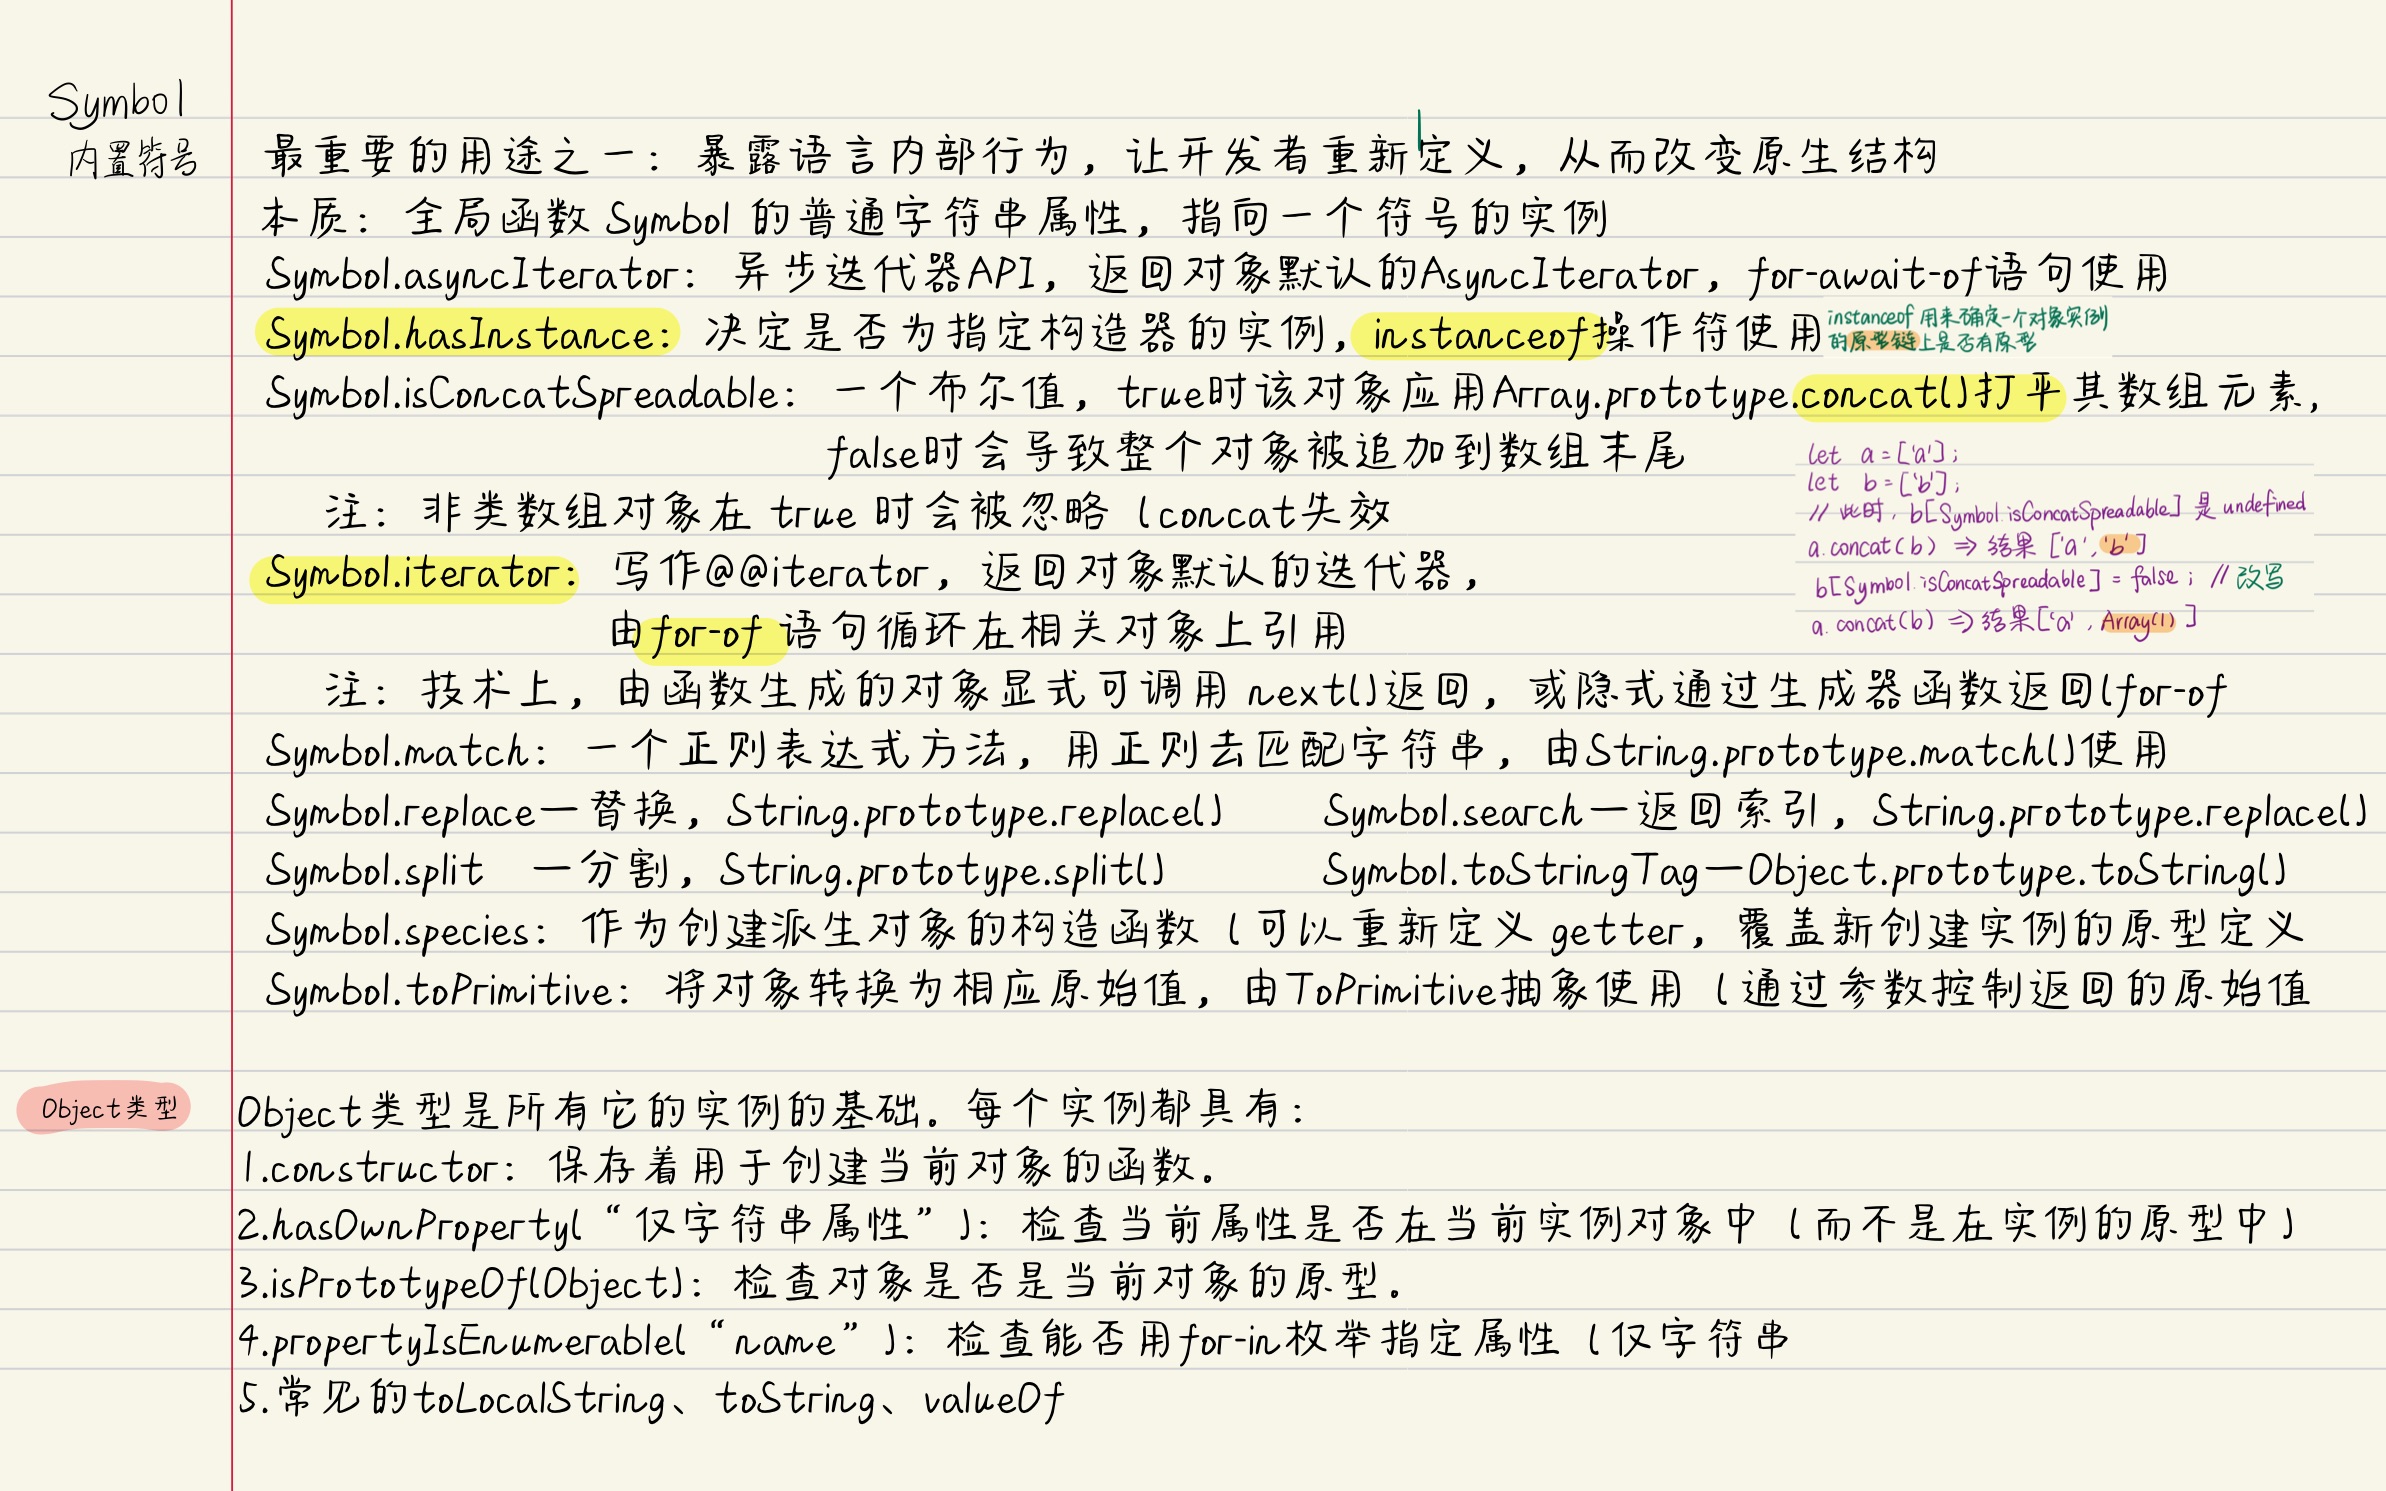 Symbol
内置符号
最重要的用途之一：暴露语言内部行为，让开发者重新定义，从而改变原生结构
本质：全局函数 Symbol 的普通字符串属性，指向一个符号的实例
Symbol.asyncIterator：异步迭代器API，返回对象默认的AsyncIterator，for-await-of语句使用
Symbol.hasInstance：决定是否为指定构造器的实例，instanceof操作符使用
instanceof 用来确定一个对象实例
的原型链上是否有原型
Symbol.isConcatSpreadable：一个布尔值，true时该对象应用Array.prototype.concat()打平其数组元素，
false时会导致整个对象被追加到数组末尾
注：非类数组对象在 true 时会被忽略（concat失效
let a = ['a'];
let b = ['b'];
// 此时，b[Symbol.isConcatSpreadable] 是 undefined
a.concat(b) => 结果 ['a', 'b']
b[Symbol.isConcatSpreadable] = false; // 改写
a.concat(b) => 结果['a', Array(1)]
Symbol.iterator：写作@@iterator，返回对象默认的迭代器，
由for-of 语句循环在相关对象上引用
注：技术上，由函数生成的对象显式可调用 next()返回，或隐式通过生成器函数返回(for-of
Symbol.match：一个正则表达式方法，用正则去匹配字符串，由String.prototype.match()使用
Symbol.replace—替换，String.prototype.replace() Symbol.search—返回索引，String.prototype.replace()
Symbol.split —分割，String.prototype.split() Symbol.toStringTag—Object.prototype.toString()
Symbol.species：作为创建派生对象的构造函数（可以重新定义 getter，覆盖新创建实例的原型定义
Symbol.toPrimitive：将对象转换为相应原始值，由ToPrimitive抽象使用（通过参数控制返回的原始值
Object类型
Object类型是所有它的实例的基础。每个实例都具有：
1.constructor：保存着用于创建当前对象的函数。
2.hasOwnProperty(“仅字符串属性”)：检查当前属性是否在当前实例对象中（而不是在实例的原型中）
3.isPrototypeOf(Object)：检查对象是否是当前对象的原型。
4.propertyIsEnumerable(“name”)：检查能否用for-in枚举指定属性（仅字符串
5.常见的toLocalString、toString、valueOf